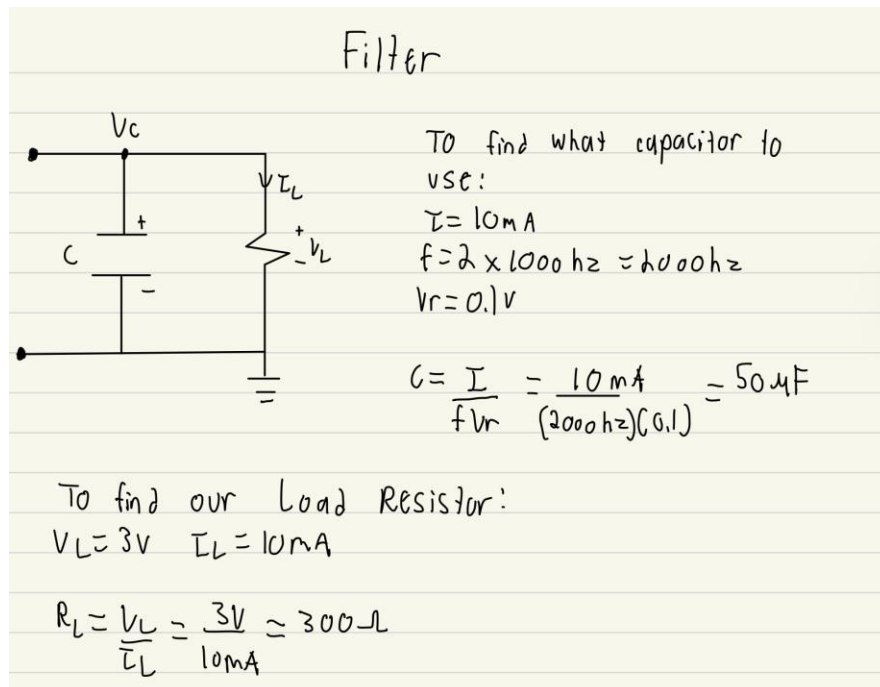 Filter
Vc
+
C
-
IL
+
VL
-
To find what capacitor to
use:
I = 10mA
f = 2 x 1000 hz = 2000hz
Vr = 0.1v
C = I / fVr = 10 mA / (2000hz)(0.1) = 50 μF
To find our Load Resistor:
VL = 3v IL = 10mA
RL = VL / IL = 3V / 10mA = 300Ω